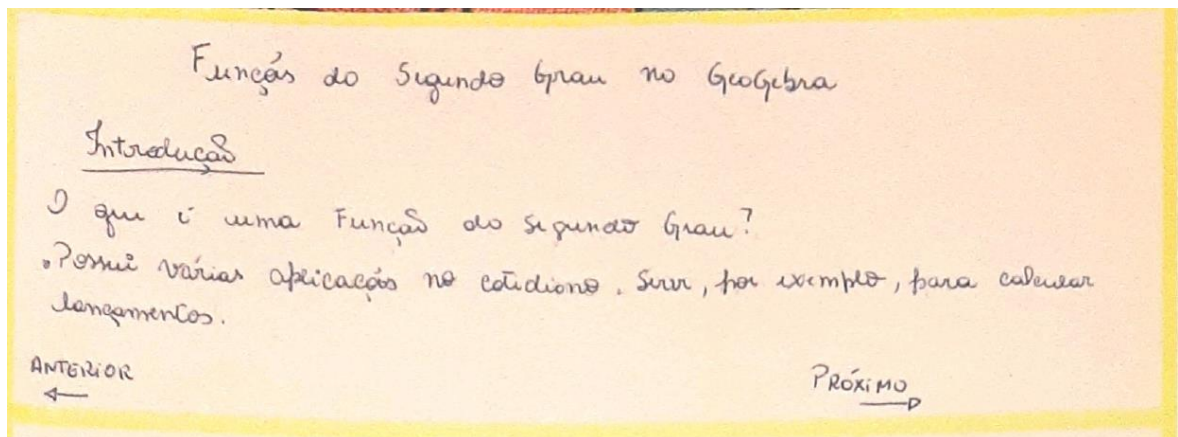 Funções do Segundo Grau no GeoGebra
Introdução
O que é uma Função do Segundo Grau?
• Possui várias aplicações no cotidiano. Serve, por exemplo, para calcular
lançamentos.
ANTERIOR PRÓXIMO